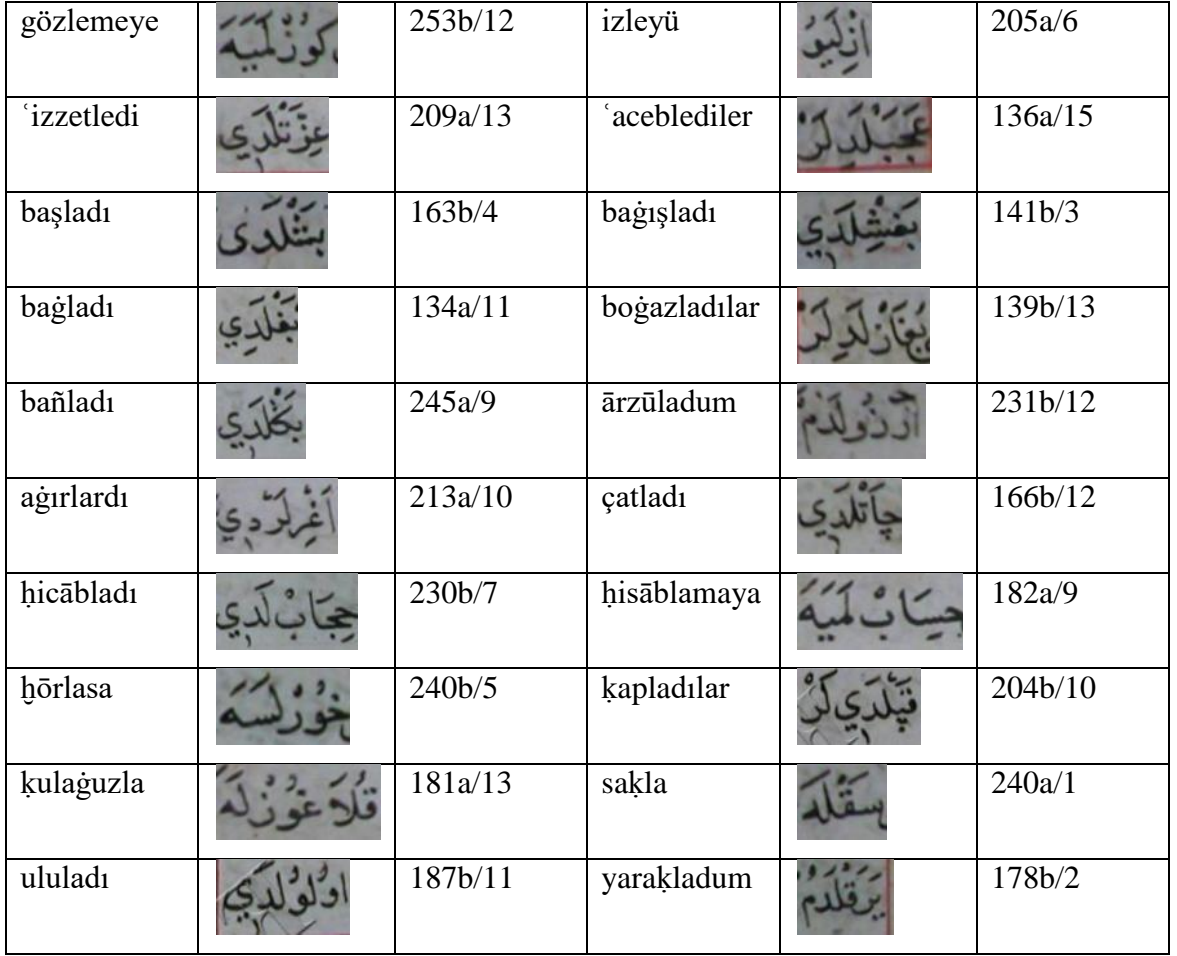 gözlemeye كُوزْلَمَيَهَ 253b/12 izleyü اِزْلَيُو 205a/6
ʿizzetledi عِزَّتْلَدِي 209a/13 ʿaceblediler عَجَبْلَدِلَرْ 136a/15
başladı بَشْلَدَى 163b/4 baġışladı بَغِشْلَدِي 141b/3
baġladı بَغْلَدِي 134a/11 boġazladılar بُغَازْلَدِلَرْ 139b/13
bañladı بَڭْلَدِي 245a/9 ārzūladum آرْزُولَدُمْ 231b/12
aġırlardı اَغِرْلَرْدِي 213a/10 çatladı چَاتْلَدِي 166b/12
ḥicābladı حِجَابْ لَدِي 230b/7 ḥisāblamaya حِسَابْ لَمَيَهَ 182a/9
ḫōrlasa خُوْرْلَسَهَ 240b/5 ḳapladılar قَپْلَدِي لَرْ 204b/10
ḳulaġuzla قُلَاغُوزْلَهَ 181a/13 saḳla سَقْلَهَ 240a/1
ululadı اُولُولَدِي 187b/11 yaraḳladum يَرَقْلَدُمْ 178b/2